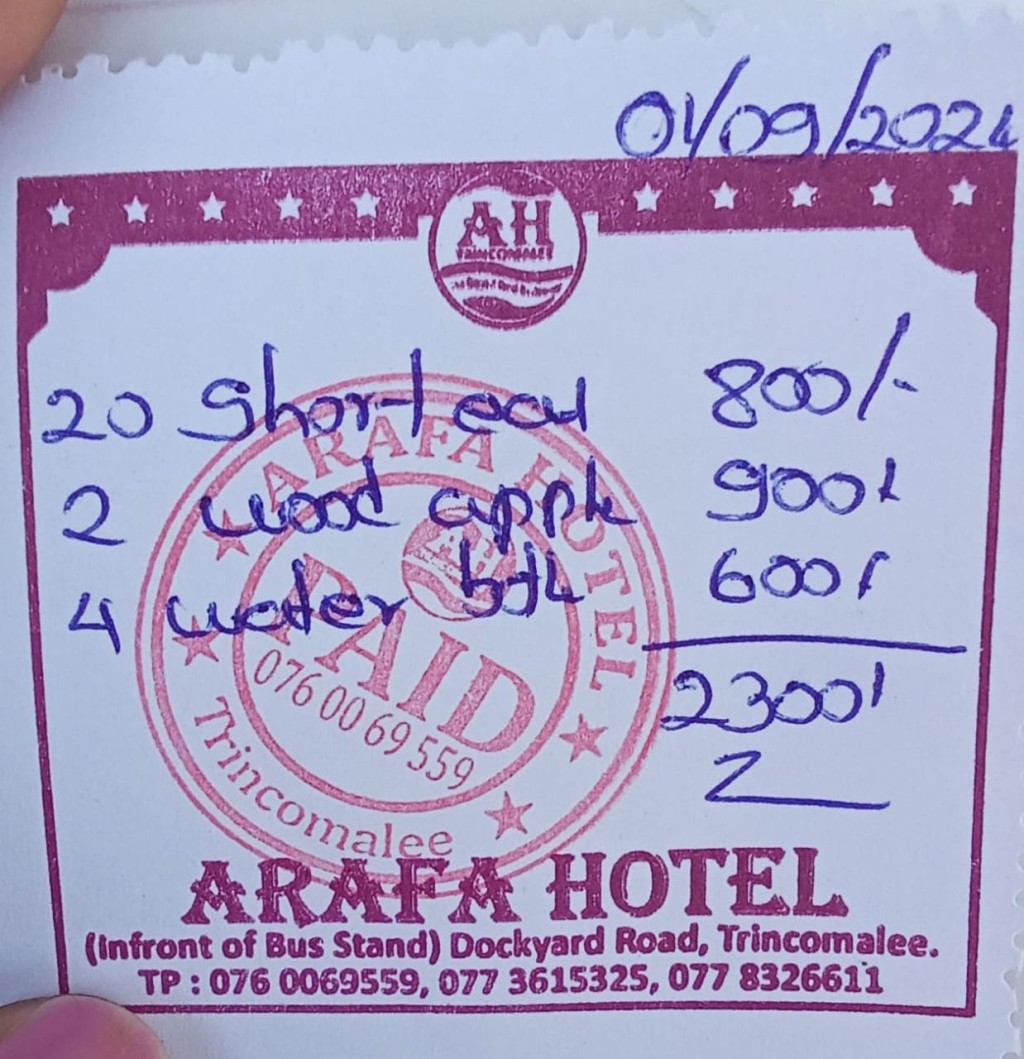 01/09/2024
AH
TRINCOMALEE
20 Short eat 800/-
2 wood apple 900/
4 water botl 600/
2300/
ARAFA HOTEL
PAID
076 00 69 559
Trincomalee
ARAFA HOTEL
(Infront of Bus Stand) Dockyard Road, Trincomalee.
TP : 076 0069559, 077 3615325, 077 8326611